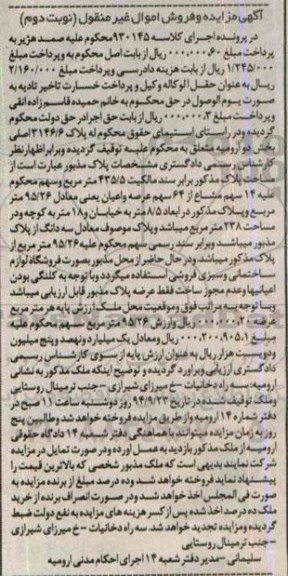 آگهی مزایده وفروش اموال غیر منقول (نوبت دوم)
در پرونده اجرای کلاسه ۹۳۰۱۴۵ محکوم علیه صمد هژیر به
پرداخت مبلغ ۶۰,۰۰۰,۰۰۰ ریال از بابت اصل محکوم به وپرداخت مبلغ
۱/۲۴۵/۰۰۰ ریال از بابت هزینه دادرسی وپرداخت مبلغ ۲/۱۶۰/۰۰۰
ریال به عنوان حقل الوکاله وکیل و پرداخت خسارت تاخیر تادیه به
صورت یوم الوصول در حق محکوم به خانم حمیده قاسم زاده اتقی
وپرداخت مبلغ ۳,۰۰۰,۰۰۰ ریال از بابت حق اجرا در حق دولت محکوم
گردیده ودر راستای استیفای حقوق محکوم له پلاک ۳۱۴۶/۶ اصلی
بخش دو ارومیه متعلق به محکوم علیه توقیف گردیده وبرابر اظهارنظر
کارشناس رسمی دادگستری مشخصات پلاک مذبور عبارت است از
مساحت پلاک مذکور برابر سند مالکیت ۴۳۵/۵ متر مربع وسهم محکوم
علیه ۱۴ سهم مشاع از ۶۴ سهم عرصه واعیان یعنی معادل ۹۵/۲۶ متر
مربع وپلاک مذکور در ابعاد ۸/۵ متر به خیابان و۱۸ متر به کوچه ودر
مساحت ۲۳۸ متر مربع میباشد وپلاک موصوف معادل سه دانگ از پلاک
مذبور میباشد وبرابر سند رسمی سهم محکوم علیه ۹۵/۲۶ متر مربع از
پلاک مذکور میباشد. ودر حال حاضر از محل مذبور بصورت فروشگاه لوازم
ساختمانی وسبزی فروشی استفاده میگردد وبا توجه به کلنگی بودن
اعیانیها وعدم مجوز ساخت فقط عرصه پلاک مذبور قابل ارزیابی میباشد
وبا توجه به مراتب فوق وموقعیت محل ملک ارزش پایه هر متر مربع
عرصه ۲۰,۰۰۰,۰۰۰ ریال وارزش ۹۵/۲۶ متر مربع سهم محکوم علیه
مبلغ ۱,۹۰۵,۲۰۰,۰۰۰ ریال ومعادل یک میلیارد ونهصد وپنج میلیون
ودویست هزار ریال به عنوان ارزش پایه از سوی کارشناس رسمی
دادگستری ارزیابی وبراورد گردیده و توضیح اینکه ملک مذکور به نشانی
ارومیه سه راه دخانیات -خ میرزای شیرازی - جنب ترمینال روستایی
وملک توقیف شده در تاریخ ۹۴/۹/۲۳ روز دوشنبه ساعت ۱۱ صبح در
دفتر شعبه ۱۴ ارومیه واز طریق مزایده فروخته خواهد شد وطالبین پنج
روز به زمان مزایده میتوانند با هماهنگی دفتر شعبه ۱۴ دادگاه حقوقی
ارومیه از ملک مذکور بازدید به عمل اورده ودر صورت تمایل در مزایده
شرکت نمایند بدیهی است که ملک مذبور شخصی که بالاترین قیمت را
پیشنهاد نماید فروخته خواهد شد وده درصد مبلغ از برنده مزایده به
صورت فی المجلس اخذ خواهد شد ودر صورت انصراف برنده از خرید
ملک ده درصد اخذ شده پس از کسر هزینه های مزایده به نفع دولت ضبط
گردیده ومزایده تجدید خواهد شد. سه راه دخانیات - خ میرزای شیرازی
- جنب ترمینال روستایی
سلیمانی -مدیر دفتر شعبه ۱۴ اجرای احکام مدنی ارومیه